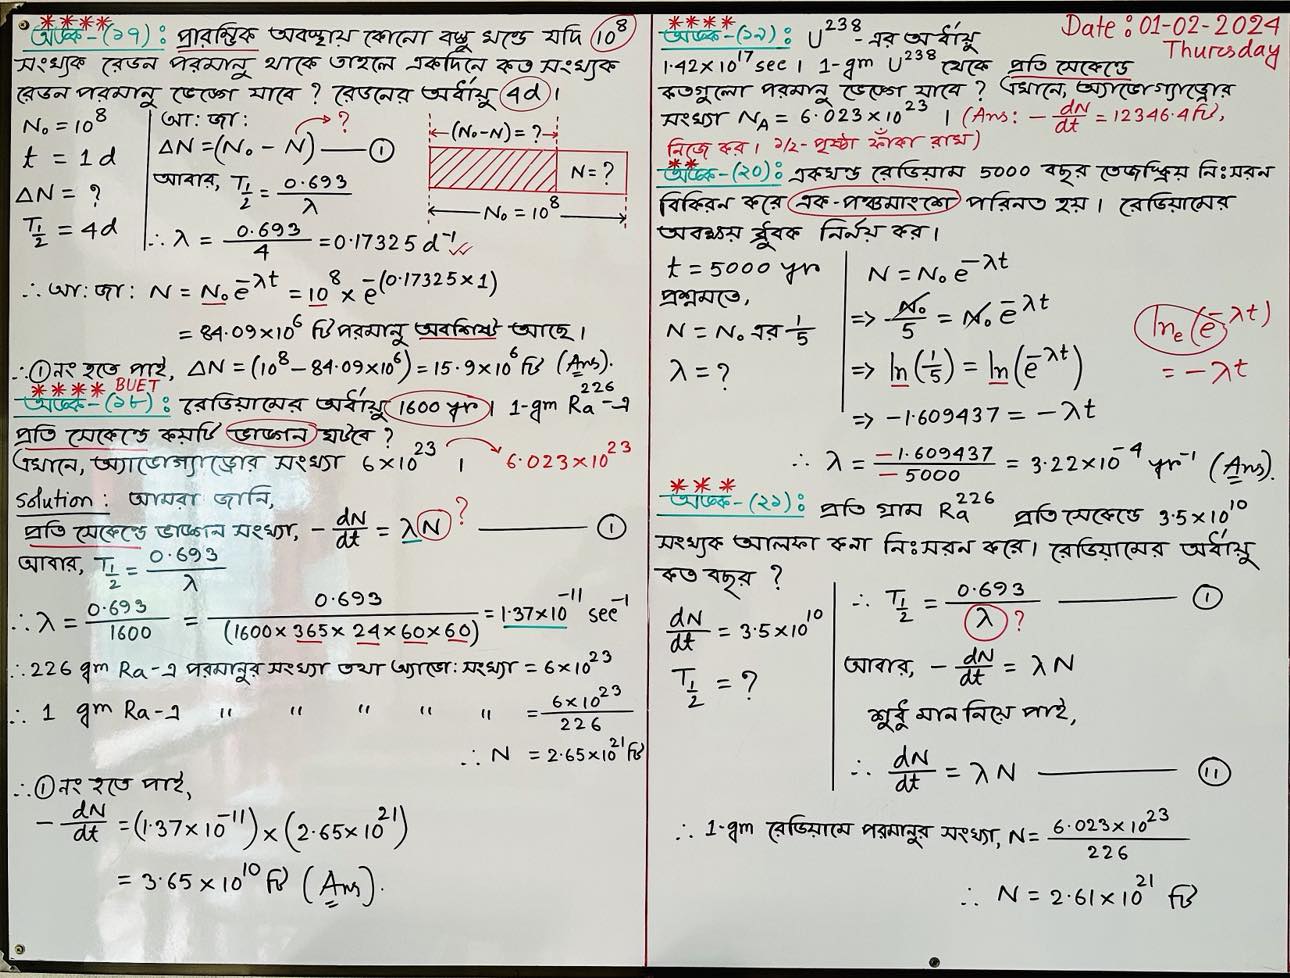 ****
অঙ্ক-(১৭): প্রারম্ভিক অবস্থায় কোনো বস্তু খন্ডে যদি 10⁸
সংখ্যক রেডন পরমানু থাকে তাহলে একদিনে কত সংখ্যক
রেডন পরমানু ভেঙ্গে যাবে? রেডনের অর্ধায়ু 4d।
N₀ = 10⁸
t = 1d
ΔN = ?
T½ = 4d
আ: জা:
ΔN = (N₀ - N) — ① ?
আবার, T½ = 0.693/λ
∴ λ = 0.693/4 = 0.17325 d⁻¹
(N₀-N) = ?
N = ?
N₀ = 10⁸
∴ আ: জা: N = N₀e^-λt = 10⁸ × e^-(0.17325×1)
= 84.09×10⁶ টি পরমানু অবশিষ্ট আছে।
∴ ① নং হতে পাই, ΔN = (10⁸ - 84.09×10⁶) = 15.9×10⁶ টি (Ans).
**** BUET
অঙ্ক-(১৮): রেডিয়ামের অর্ধায়ু 1600 yr। 1-gm Ra²²⁶-এ
প্রতি সেকেন্ডে কয়টি ভাঙ্গন ঘটবে?
এখানে, অ্যাভোগ্যাড্রোর সংখ্যা 6×10²³ । 6.023×10²³
Solution: আমরা জানি,
প্রতি সেকেন্ডে ভাঙ্গন সংখ্যা, -dN/dt = λN ? — ①
আবার, T½ = 0.693/λ
∴ λ = 0.693/1600 = 0.693/(1600×365×24×60×60) = 1.37×10⁻¹¹ sec⁻¹
∴ 226 gm Ra-এ পরমানুর সংখ্যা তথা অ্যাভো: সংখ্যা = 6×10²³
∴ 1 gm Ra-এ " " " " " = 6×10²³/226
∴ N = 2.65×10²¹ টি
∴ ① নং হতে পাই,
-dN/dt = (1.37×10⁻¹¹)×(2.65×10²¹)
= 3.65×10¹⁰ টি (Ans).
Date: 01-02-2024
Thursday
****
অঙ্ক-(১৯): U²³⁸-এর অর্ধায়ু
1.42×10¹⁷ sec। 1-gm U²³⁸ থেকে প্রতি সেকেন্ডে
কতগুলো পরমানু ভেঙ্গে যাবে? এখানে, অ্যাভোগ্যাড্রোর
সংখ্যা N_A = 6.023×10²³ । (Ans: -dN/dt = 12346.4টি,
নিজে কর। ১/২-পৃষ্ঠা ফাঁকা রাখ)
**
অঙ্ক-(২০): একখন্ড রেডিয়াম 5000 বছর তেজষ্ক্রিয় নিঃসরন
বিকিরন করে এক-পঞ্চমাংশে পরিনত হয়। রেডিয়ামের
অবক্ষয় ধ্রুবক নির্নয় কর।
t = 5000 yr
প্রশ্নমতে,
N = N₀ এর 1/5
λ = ?
N = N₀e^-λt
=> N₀/5 = N₀e^-λt
=> ln(1/5) = ln(e^-λt)
=> -1.609437 = -λt
lnₑ(e^-λt)
= -λt
∴ λ = -1.609437/-5000 = 3.22×10⁻⁴ yr⁻¹ (Ans).
***
অঙ্ক-(২১): প্রতি গ্রাম Ra²²⁶ প্রতি সেকেন্ডে 3.5×10¹⁰
সংখ্যক আলফা কনা নিঃসরন করে। রেডিয়ামের অর্ধায়ু
কত বছর?
dN/dt = 3.5×10¹⁰
T½ = ?
∴ T½ = 0.693/λ ? — ①
আবার, -dN/dt = λN
শুধু মান নিয়ে পাই,
∴ dN/dt = λN — ⑪
∴ 1-gm রেডিয়ামে পরমানুর সংখ্যা, N = 6.023×10²³/226
∴ N = 2.61×10²¹ টি